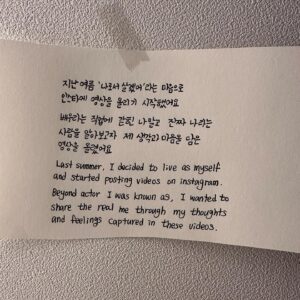 지난 여름 '나로서 살겠어'라는 마음으로
인스타에 영상을 올리기 시작했어요
배우라는 직업에 갇힌 나 말고 진짜 나라는
사람을 알아보고자 제 생각과 마음을 담은
영상을 올렸어요
Last summer, I decided to live as myself
and started posting videos on instagram.
Beyond actor I was known as, I wanted to
share the real me through my thoughts
and feelings captured in these videos.